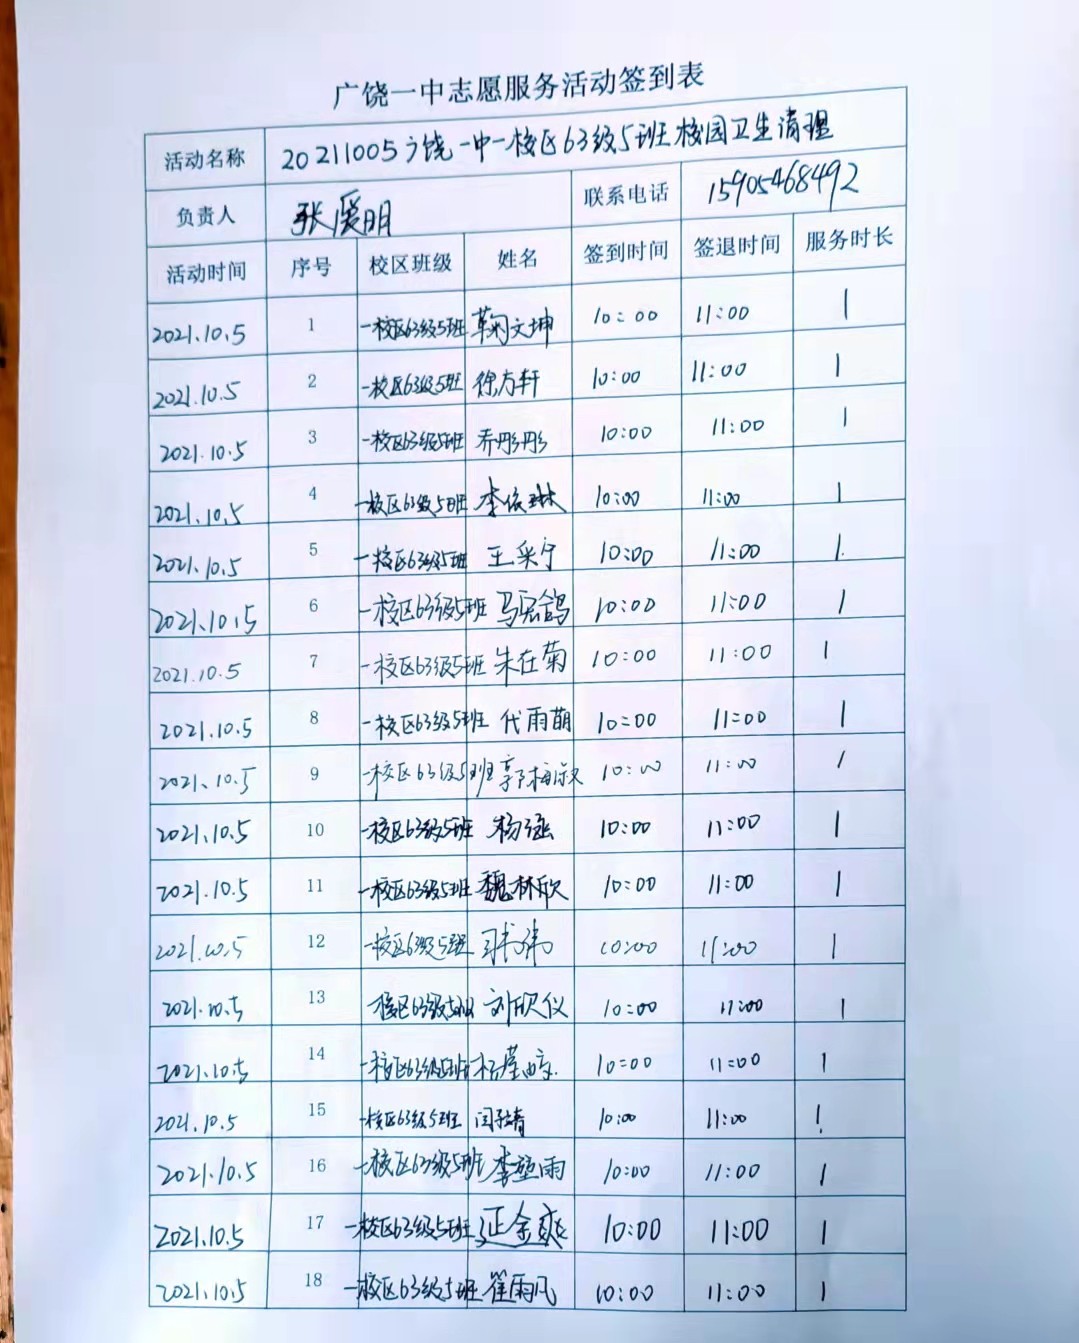 广饶一中志愿服务活动签到表
活动名称 20211005广饶一中一校区63级5班校园卫生清理
负责人 张爱明 联系电话 15905468492
活动时间 序号 校区班级 姓名 签到时间 签退时间 服务时长
2021.10.5 1 一校区63级5班 鞠文坤 10:00 11:00 1
2021.10.5 2 一校区63级5班 徐方轩 10:00 11:00 1
2021.10.5 3 一校区63级5班 乔彤彤 10:00 11:00 1
2021.10.5 4 一校区63级5班 李依琳 10:00 11:00 1
2021.10.5 5 一校区63级5班 王采宁 10:00 11:00 1
2021.10.5 6 一校区63级5班 10:00 11:00 1
2021.10.5 7 一校区63级5班 朱在菊 10:00 11:00 1
2021.10.5 8 一校区63级5班 代雨萌 10:00 11:00 1
2021.10.5 9 一校区63级5班 10:00 11:00 1
2021.10.5 10 一校区63级5班 杨涵 10:00 11:00 1
2021.10.5 11 一校区63级5班 魏林欣 10:00 11:00 1
2021.10.5 12 一校区63级5班 10:00 11:00 1
2021.10.5 13 一校区63级5班 刘欣仪 10:00 11:00 1
2021.10.5 14 一校区63级5班 10:00 11:00 1
2021.10.5 15 一校区63级5班 10:00 11:00 1
2021.10.5 16 一校区63级5班 10:00 11:00 1
2021.10.5 17 一校区63级5班 延金爽 10:00 11:00 1
2021.10.5 18 一校区63级5班 崔雨凡 10:00 11:00 1